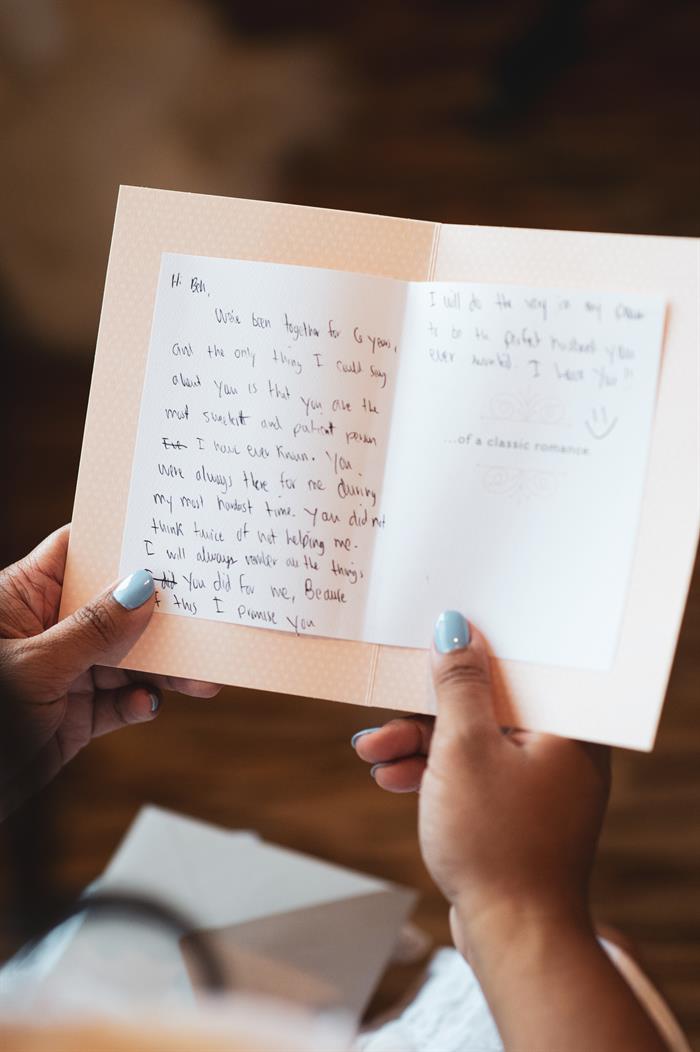 Hi Beh,
We've been together for 6 years,
and the only thing I could say
about you is that you are the
most sweetest and patient person
I have ever known. You
were always there for me during
my most hardest time. You did not
think twice of not helping me.
I will always all the things
did you did for me, Because
of this I Promise you
I will do the very in my power
to be the perfect husband you
ever wanted. I love you!!
...of a classic romance